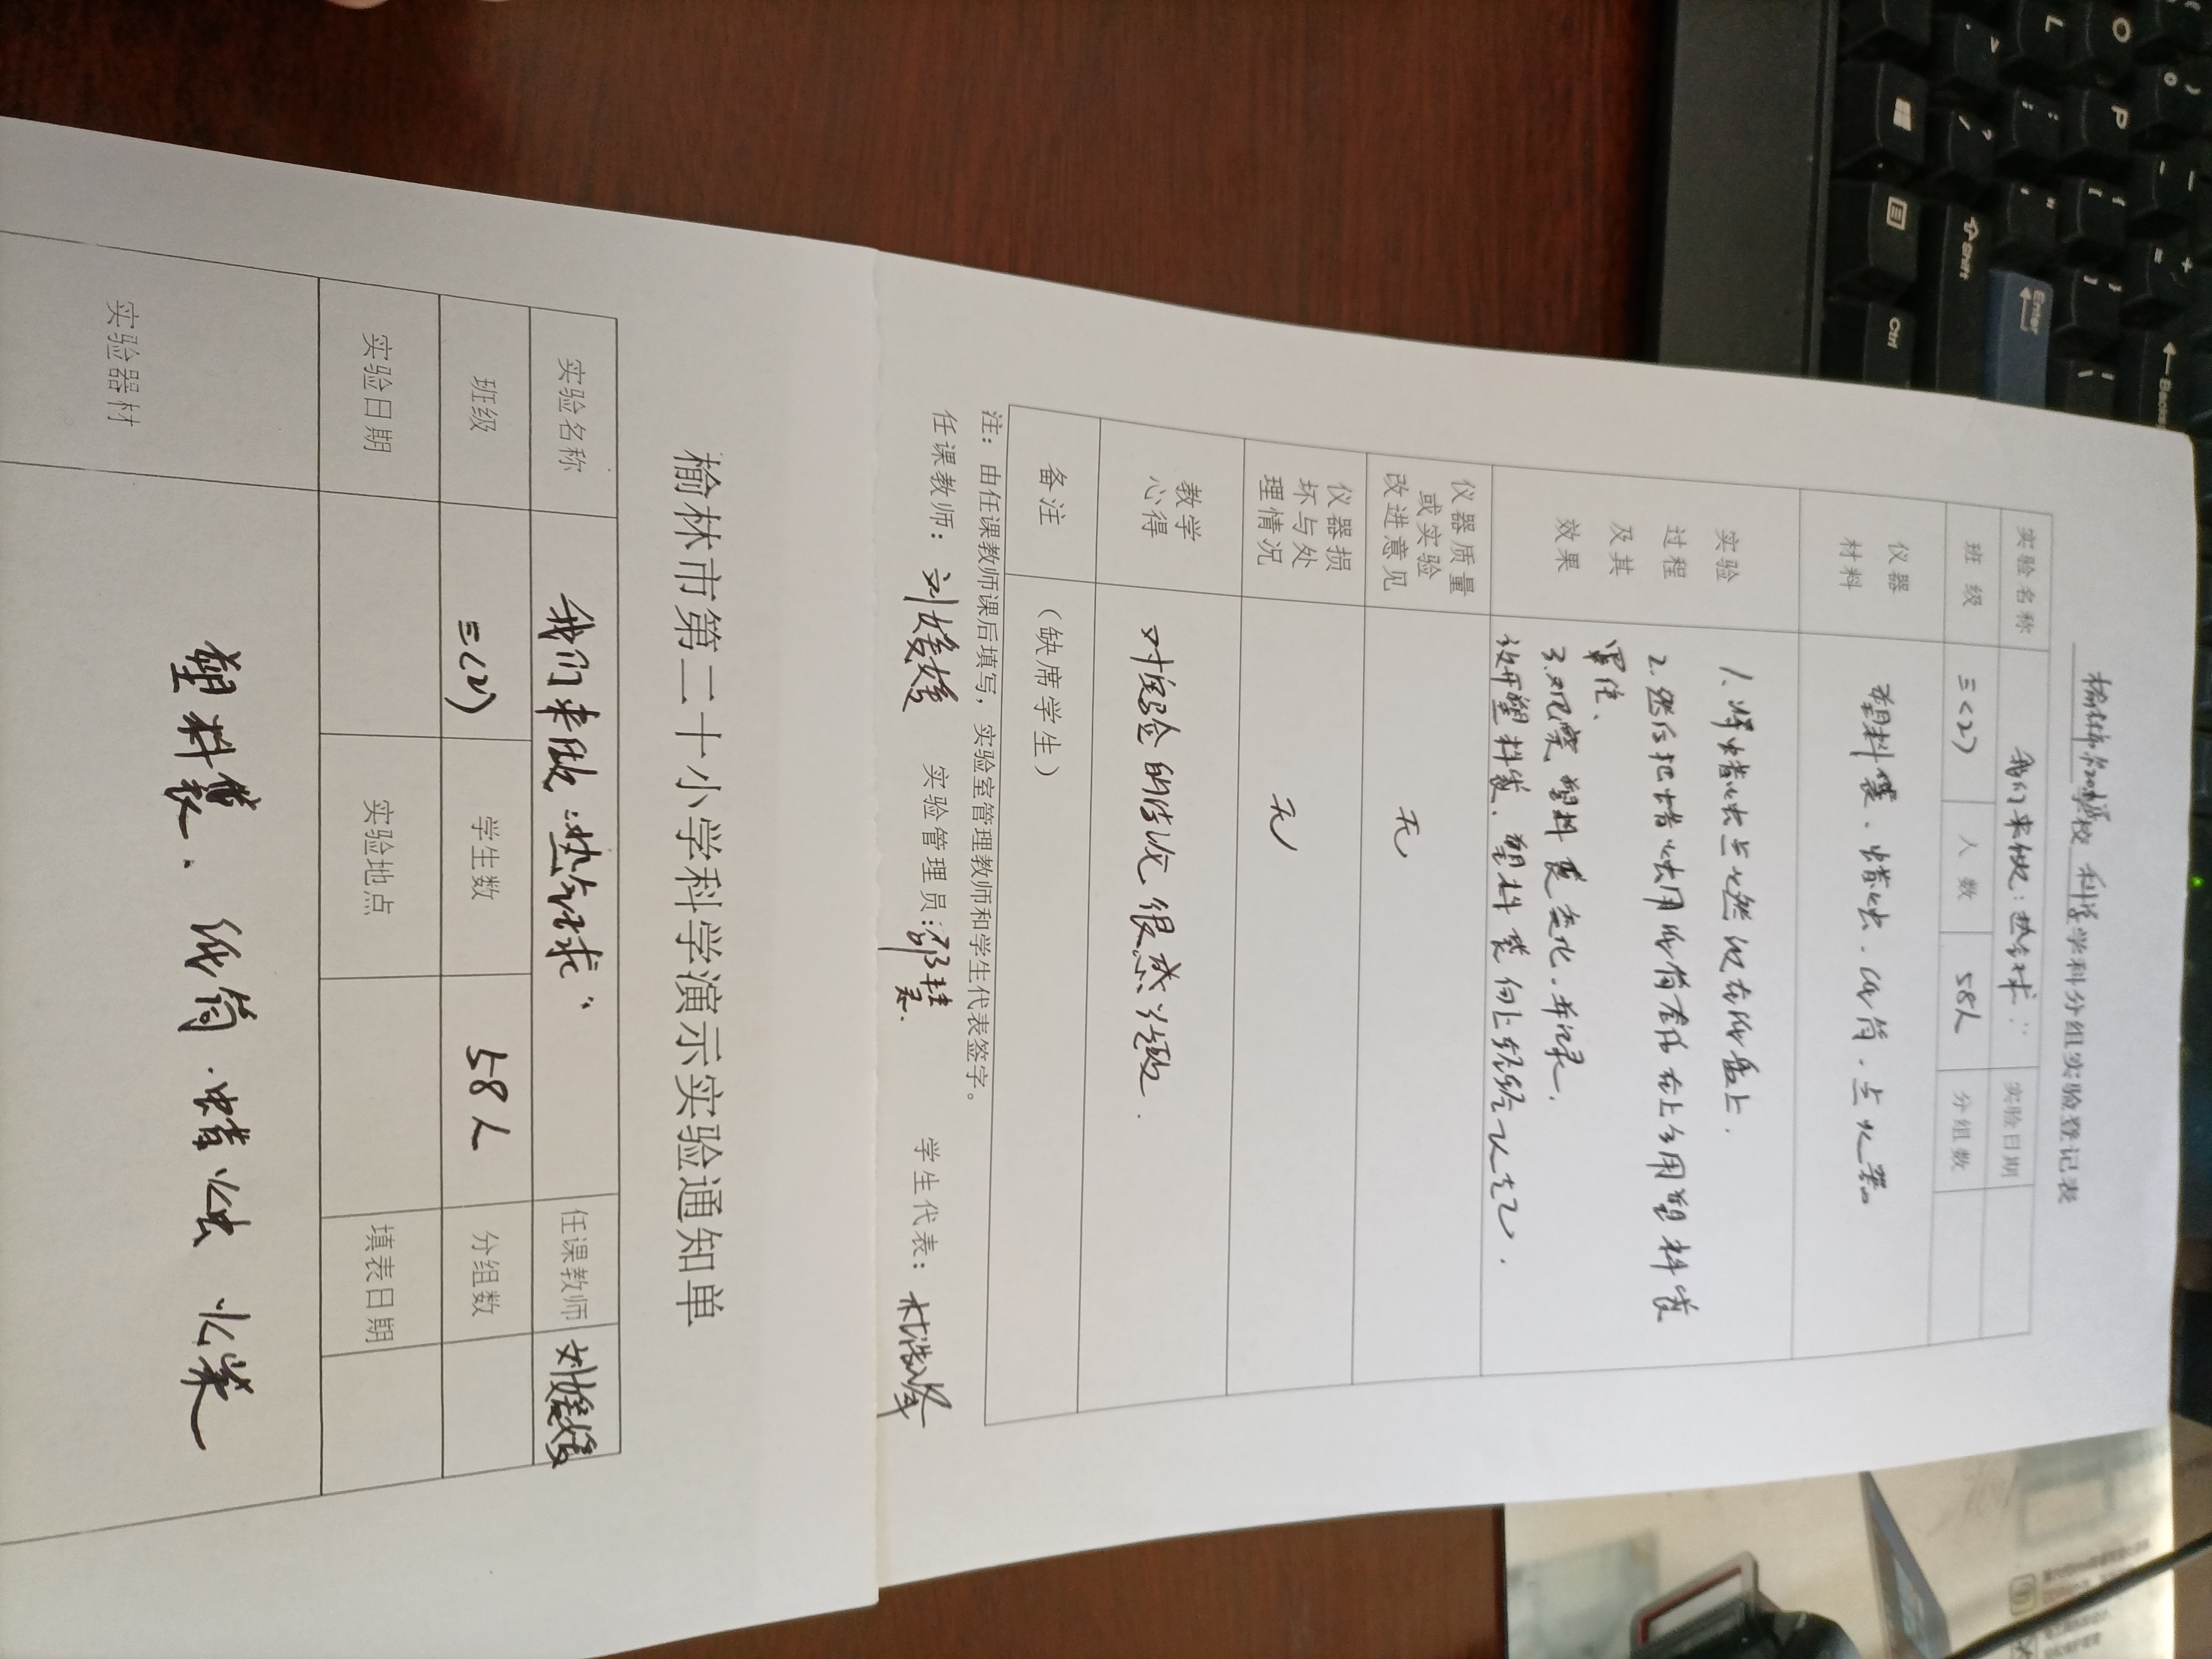 榆林市第二十小学校 科学 学科分组实验登记表
实验名称 我们来做:热气球" 实验日期
班级 三(2) 人数 58人 分组数
仪器材料 塑料袋、蜡烛、纸筒、点火器
实验过程及其效果
1、将蜡烛点燃放在纸盘上.
2.然后把蜡烛用纸筒在上方用塑料袋
罩住、
3.观察塑料袋变化.并记录.
放开塑料袋、塑料袋向上轻轻飞走了.
仪器质量或实验改进意见 无
仪器损坏与处理情况 无
教学心得 对实验的结论很感兴趣.
备注 (缺席学生)
注:由任课教师课后填写,实验室管理教师和学生代表签字。
任课教师:刘媛媛 实验管理员: 学生代表:
榆林市第二十小学科学演示实验通知单
实验名称 我们来做:热气球" 任课教师 刘媛媛
班级 三(2) 学生数 58人 分组数
实验日期 实验地点 填表日期
实验器材 塑料袋、纸筒.蜡烛 火柴
Enter
Shift
Ctrl
Backsp
O
P
L